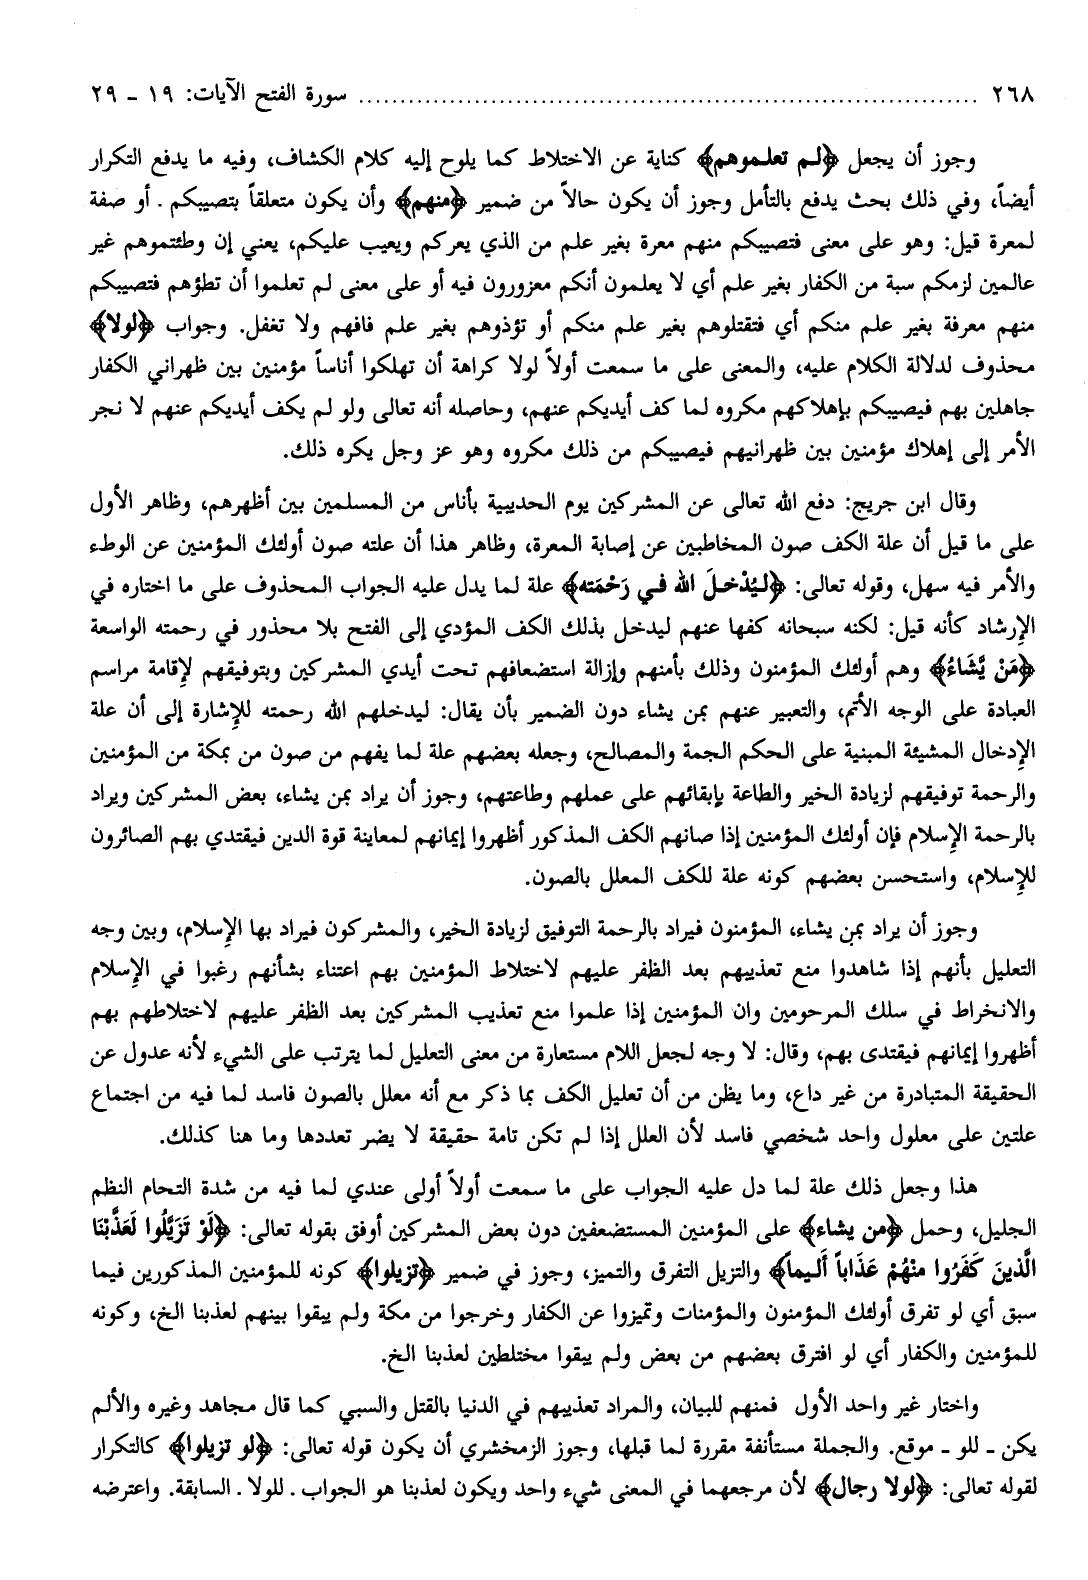 ٢٦٨ ........................................................................... سورة الفتح الآيات: ١٩ - ٢٩
وجوز أن يجعل ﴿لم تعلموهم﴾ كناية عن الاختلاط كما يلوح إليه كلام الكشاف، وفيه ما يدفع التكرار
أيضاً، وفي ذلك بحث يدفع بالتأمل وجوز أن يكون حالاً من ضمير ﴿منهم﴾ وأن يكون متعلقاً بتصيبكم. أو صفة
لمعرة قيل: وهو على معنى فتصيبكم منهم معرة بغير علم من الذي يعركم ويعيب عليكم، يعني إن وطئتموهم غير
عالمين لزمكم سبة من الكفار بغير علم أي لا يعلمون أنكم معزورون فيه أو على معنى لم تعلموا أن تطؤهم فتصيبكم
منهم معرفة بغير علم منكم أي فتقتلوهم بغير علم منكم أو تؤذوهم بغير علم فافهم ولا تغفل. وجواب ﴿لولا﴾
محذوف لدلالة الكلام عليه، والمعنى على ما سمعت أولاً لولا كراهة أن تهلكوا أناساً مؤمنين بين ظهراني الكفار
جاهلين بهم فيصيبكم بإهلاكهم مكروه لما كف أيديكم عنهم، وحاصله أنه تعالى ولو لم يكف أيديكم عنهم لا نجر
الأمر إلى إهلاك مؤمنين بين ظهرانيهم فيصيبكم من ذلك مكروه وهو عز وجل يكره ذلك.
وقال ابن جريج: دفع الله تعالى عن المشركين يوم الحديبية بأناس من المسلمين بين أظهرهم، وظاهر الأول
على ما قيل أن علة الكف صون المخاطبين عن إصابة المعرة، وظاهر هذا أن علته صون أولئك المؤمنين عن الوطء
والأمر فيه سهل، وقوله تعالى: ﴿ليُدْخلَ الله في رَحْمَته﴾ علة لما يدل عليه الجواب المحذوف على ما اختاره في
الإرشاد كأنه قيل: لكنه سبحانه كفها عنهم ليدخل بذلك الكف المؤدي إلى الفتح بلا محذور في رحمته الواسعة
﴿مَنْ يَّشَاءُ﴾ وهم أولئك المؤمنون وذلك بأمنهم وإزالة استضعافهم تحت أيدي المشركين وبتوفيقهم لإقامة مراسم
العبادة على الوجه الأتم، والتعبير عنهم بمن يشاء دون الضمير بأن يقال: ليدخلهم الله رحمته للإشارة إلى أن علة
الإدخال المشيئة المبنية على الحكم الجمة والمصالح، وجعله بعضهم علة لما يفهم من صون من بمكة من المؤمنين
والرحمة توفيقهم لزيادة الخير والطاعة بإبقائهم على عملهم وطاعتهم، وجوز أن يراد بمن يشاء، بعض المشركين ويراد
بالرحمة الإسلام فإن أولئك المؤمنين إذا صانهم الكف المذكور أظهروا إيمانهم لمعاينة قوة الدين فيقتدي بهم الصائرون
للإسلام، واستحسن بعضهم كونه علة للكف المعلل بالصون.
وجوز أن يراد بمن يشاء، المؤمنون فيراد بالرحمة التوفيق لزيادة الخير، والمشركون فيراد بها الإسلام، وبين وجه
التعليل بأنهم إذا شاهدوا منع تعذيبهم بعد الظفر عليهم لاختلاط المؤمنين بهم اعتناء بشأنهم رغبوا في الإسلام
والانخراط في سلك المرحومين وان المؤمنين إذا علموا منع تعذيب المشركين بعد الظفر عليهم لاختلاطهم بهم
أظهروا إيمانهم فيقتدى بهم، وقال: لا وجه لجعل اللام مستعارة من معنى التعليل لما يترتب على الشيء لأنه عدول عن
الحقيقة المتبادرة من غير داع، وما يظن من أن تعليل الكف بما ذكر مع أنه معلل بالصون فاسد لما فيه من اجتماع
علتين على معلول واحد شخصي فاسد لأن العلل إذا لم تكن تامة حقيقة لا يضر تعددها وما هنا كذلك.
هذا وجعل ذلك علة لما دل عليه الجواب على ما سمعت أولاً أولى عندي لما فيه من شدة التحام النظم
الجليل، وحمل ﴿من يشاء﴾ على المؤمنين المستضعفين دون بعض المشركين أوفق بقوله تعالى: ﴿لَوْ تَزَيَّلُوا لَعَذَّبْنَا
الَّذينَ كَفَرُوا منْهُمْ عَذَاباً أَليماً﴾ والتزيل التفرق والتميز، وجوز في ضمير ﴿تزيلوا﴾ كونه للمؤمنين المذكورين فيما
سبق أي لو تفرق أولئك المؤمنون والمؤمنات وتميزوا عن الكفار وخرجوا من مكة ولم يبقوا بينهم لعذبنا الخ، وكونه
للمؤمنين والكفار أي لو افترق بعضهم من بعض ولم يبقوا مختلطين لعذبنا الخ.
واختار غير واحد الأول فمنهم للبيان، والمراد تعذيبهم في الدنيا بالقتل والسبي كما قال مجاهد وغيره والألم
يكن - للو - موقع. والجملة مستأنفة مقررة لما قبلها، وجوز الزمخشري أن يكون قوله تعالى: ﴿لو تزيلوا﴾ كالتكرار
لقوله تعالى: ﴿لولا رجال﴾ لأن مرجعهما في المعنى شيء واحد ويكون لعذبنا هو الجواب. للولا. السابقة. واعترضه